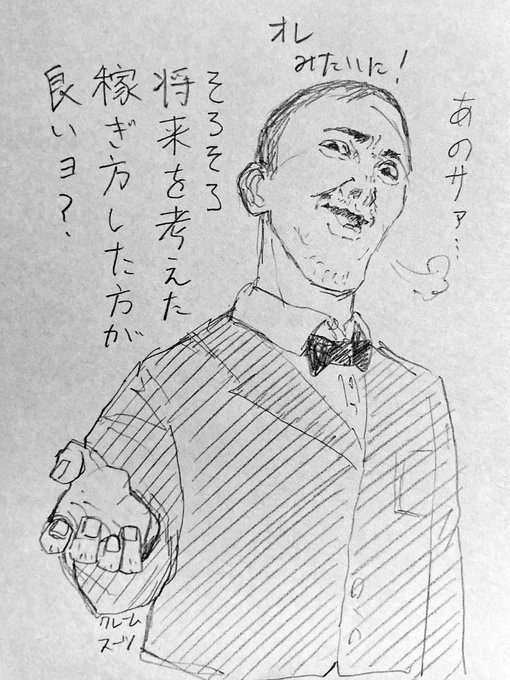 あのサァ…
オレ
みたいに!
そろそろ
将来を考えた
稼ぎ方した方が
良いヨ?
クレーム
スーツ